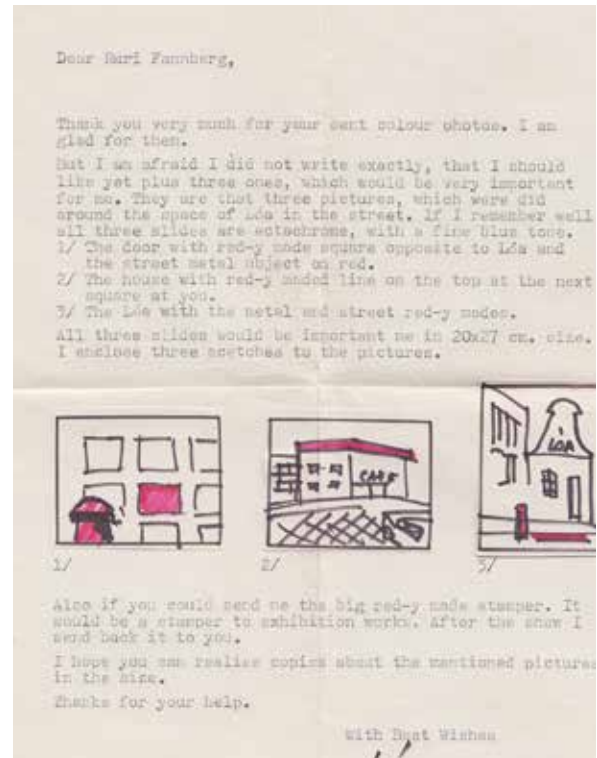 Dear Rúri Fannberg,
Thank you very much for your sent colour photos. I am
glad for them.
But I am afraid I did not write exactly, that I should
like yet plus three ones, which would be very important
for me. They are that three pictures, which were did
around the space of Lóa in the street. If I remember well
all three slides are ectachrome, with a fine blue tone.
1/ The door with red-y made square opposite to Lóa and
the street metal object on red.
2/ The house with red-y maded line on the top at the next
square at you.
3/ The Lóa with the metal and street red-y mades.
All three slides would be important me in 20x27 cm. size.
I enclose three scetches to the pictures.
CAFE
LÓA
1/
2/
3/
Also if you could send me the big red-y made stamper. It
would be a stamper to exhibition works. After the show I
send back it to you.
I hope you can realise copies about the mentioned pictures
in the size.
Thanks for your help.
With Best Wishes